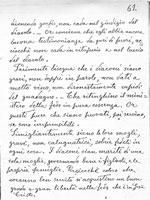 61.
diventò gonfio, non cada nel giudizio del
diavolo. Or conviene che egli abbia ancora
buona testimonianza da quei di fuori, ac-
ciocchè non cada in vituperio e nel laccio
del diavolo.
Parimente bisogna che i diaconi sieno
gravi, non doppi in parole, non dati a
molto vino, non disonestamente cupidi
del guadagno. Che ritengano il mini-
stero della fede in pura coscienza. Or
questi pure sieno provati, poi servano,
se sono irreprensibili.
Simigliantemente sieno le loro mogli,
gravi, non calunniatrici, sobrie, fedeli in
ogni cosa. I diaconi sian mariti d'una
sola moglie, governando bene i figliuoli, e le
proprie famiglie. Perciocchè coloro che
avranno ben servito si acquistano un buon
grado e gran libertà nella fede che è in Gesù
Cristo.